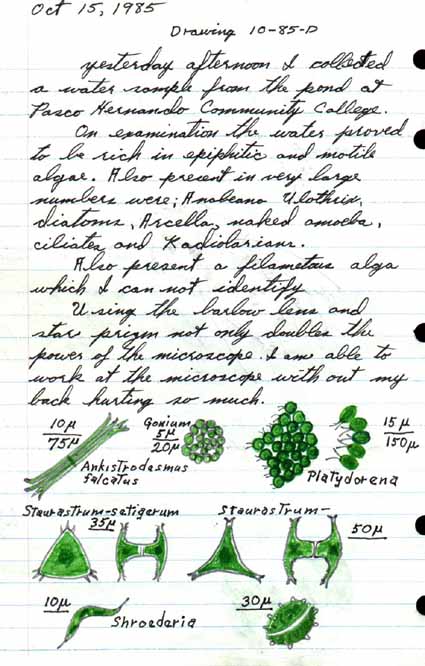 Oct 15, 1985
Drawing 10-85-D
yesterday afternoon I collected
a water sample from the pond at
Pasco Hernando Community College.
On examination the water proved
to be rich in epiphitic and motile
algae. Also present in very large
numbers were; Anabeana Ulothrix,
diatoms, Arcella, naked amoeba,
ciliates and Radiolarians.
Also present a filametous alga
which I can not identify
Using the barlow lens and
star prizm not only doubles the
power of the microscope. I am able to
work at the microscope with out my
back hurting so much.
10µ
75µ
Ankistrodasmus
falcatus
Gonium
5µ
20µ
Platydorena
15µ
150µ
Staurastrum-satigerum
35µ
Staurostrum-
50µ
10µ
Shroedaria
30µ